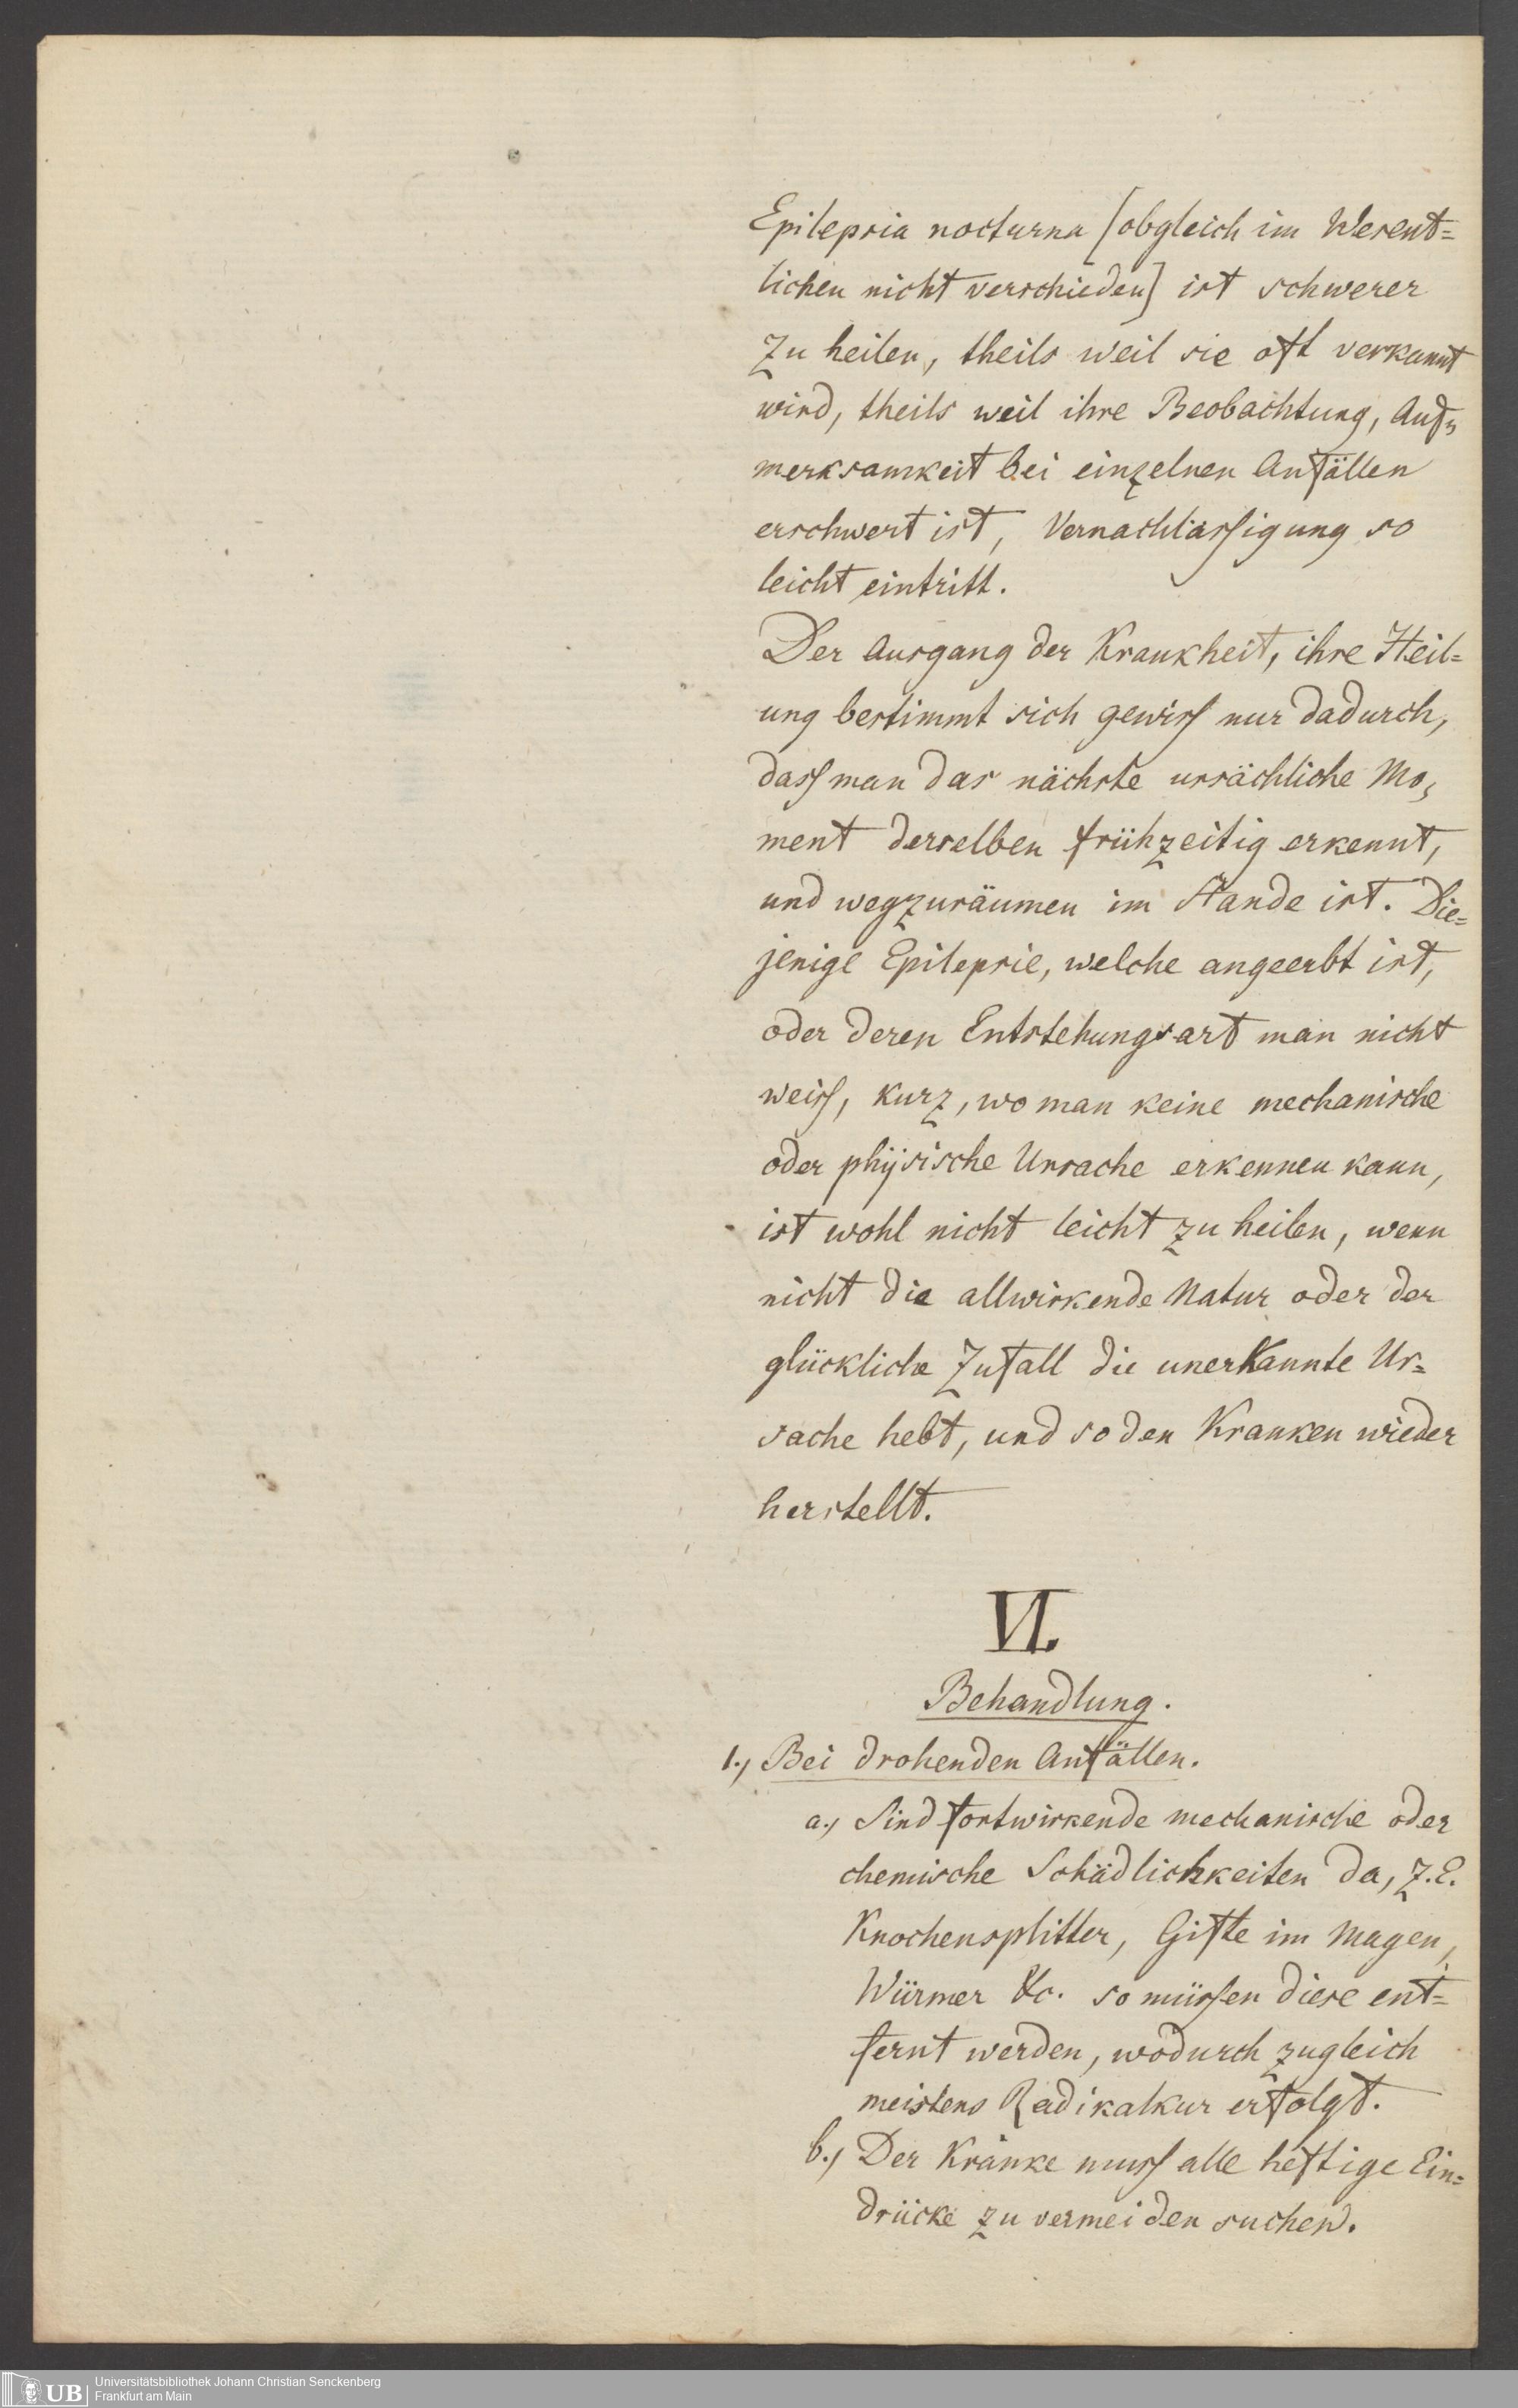 Epilepsia nocturna [obgleich im Wesent=
lichen nicht verschieden] ist schwerer
zu heilen, theils weil sie oft verkannt
wird, theils weil ihre Beobachtung, Auf=
merksamkeit bei einzelnen Anfällen
erschwert ist, Vernachläsſigung so
leicht eintritt.
Der Ausgang der Krankheit, ihre Heil=
ung bestimmt sich gewisſ nur dadurch,
dasſ man das nächste ursächliche Mo=
ment derselben frühzeitig erkennt,
und wegzuräumen im Stande ist. Die=
jenige Epilepsie, welche angeerbt ist,
oder deren Entstehungsart man nicht
weisſ, kurz, wo man keine mechanische
oder phÿsische Ursache erkennen kann,
ist wohl nicht leicht zu heilen, wenn
nicht die allwirkende Natur oder der
glückliche Zufall die unerkannte Ur=
sache hebt, und so den Kranken wieder
herstellt.
VI.
Behandlung.
1., Bei drohenden Anfällen.
a., Sind fortwirkende mechanische oder
chemische Schädlichkeiten da, z.E.
Knochensplitter, Gifte im Magen,
Würmer &c. so müsſen diese ent=
fernt werden, wodurch zugleich
meistens Radikalkur erfolgt.
b., Der Kranke musſ alle heftige Ein=
drücke zu vermeiden suchen.
UB
Universitätsbibliothek Johann Christian Senckenberg
Frankfurt am Main